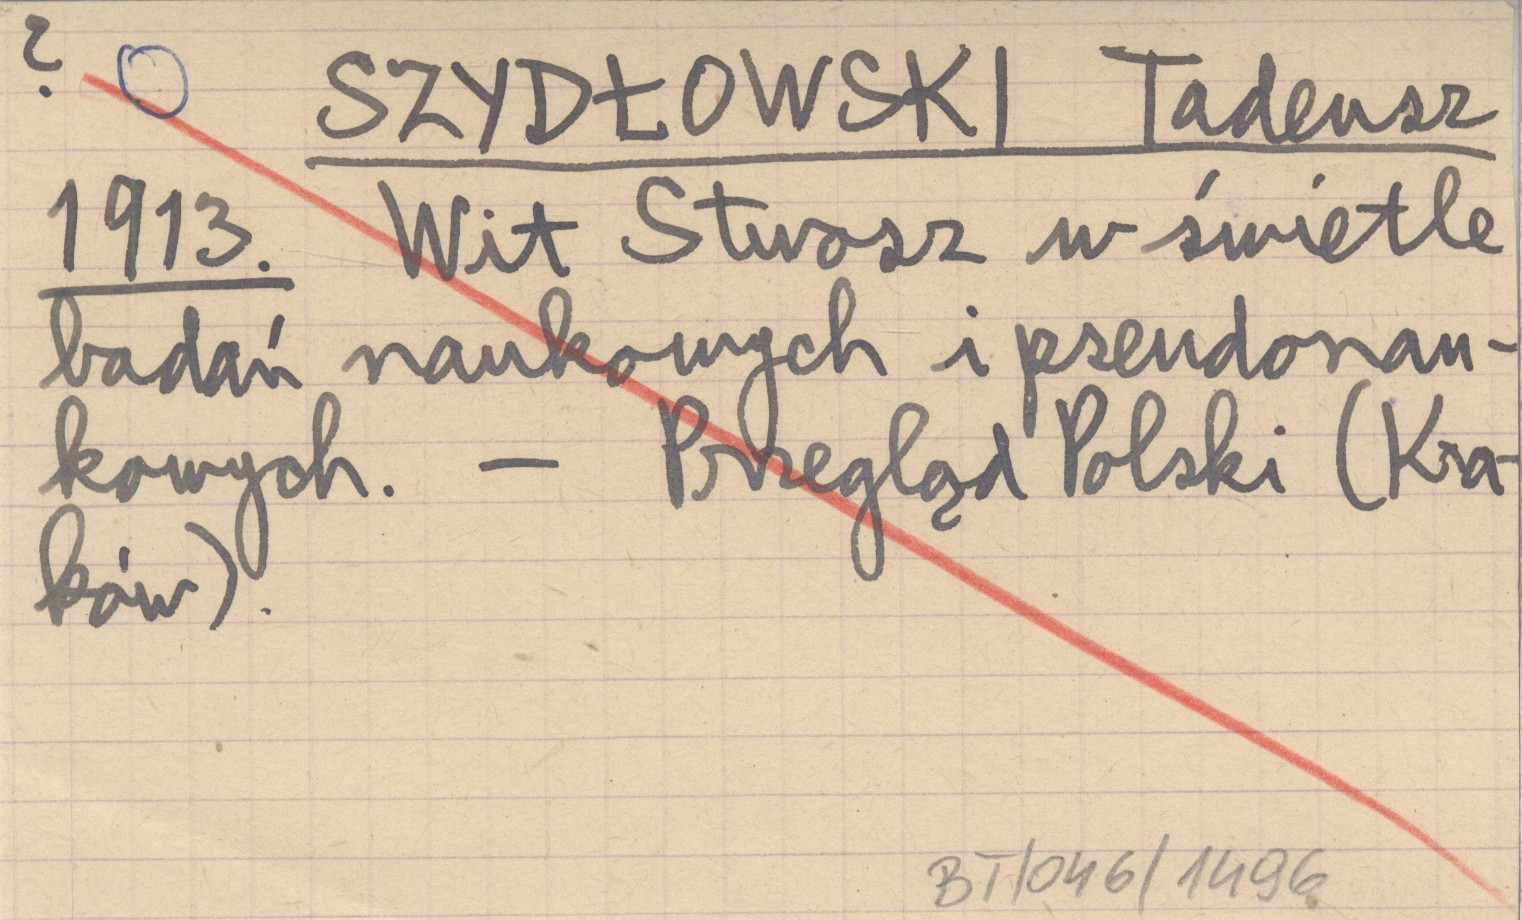 ?
SZYDŁOWSKI Tadeusz
1913. Wit Stwosz w świetle
badań naukowych i pseudonau-
kowych. — Przegląd Polski (Kra-
ków).
BT/046/1496